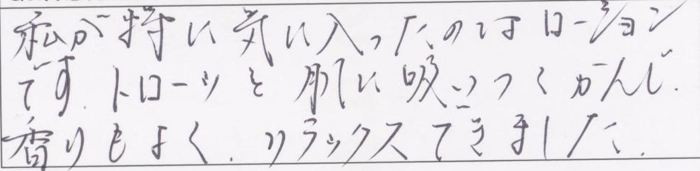 私が特に気に入ったのはローション
です。トローッと肌に吸いつくかんじ.
香りもよく、リラックスできました.